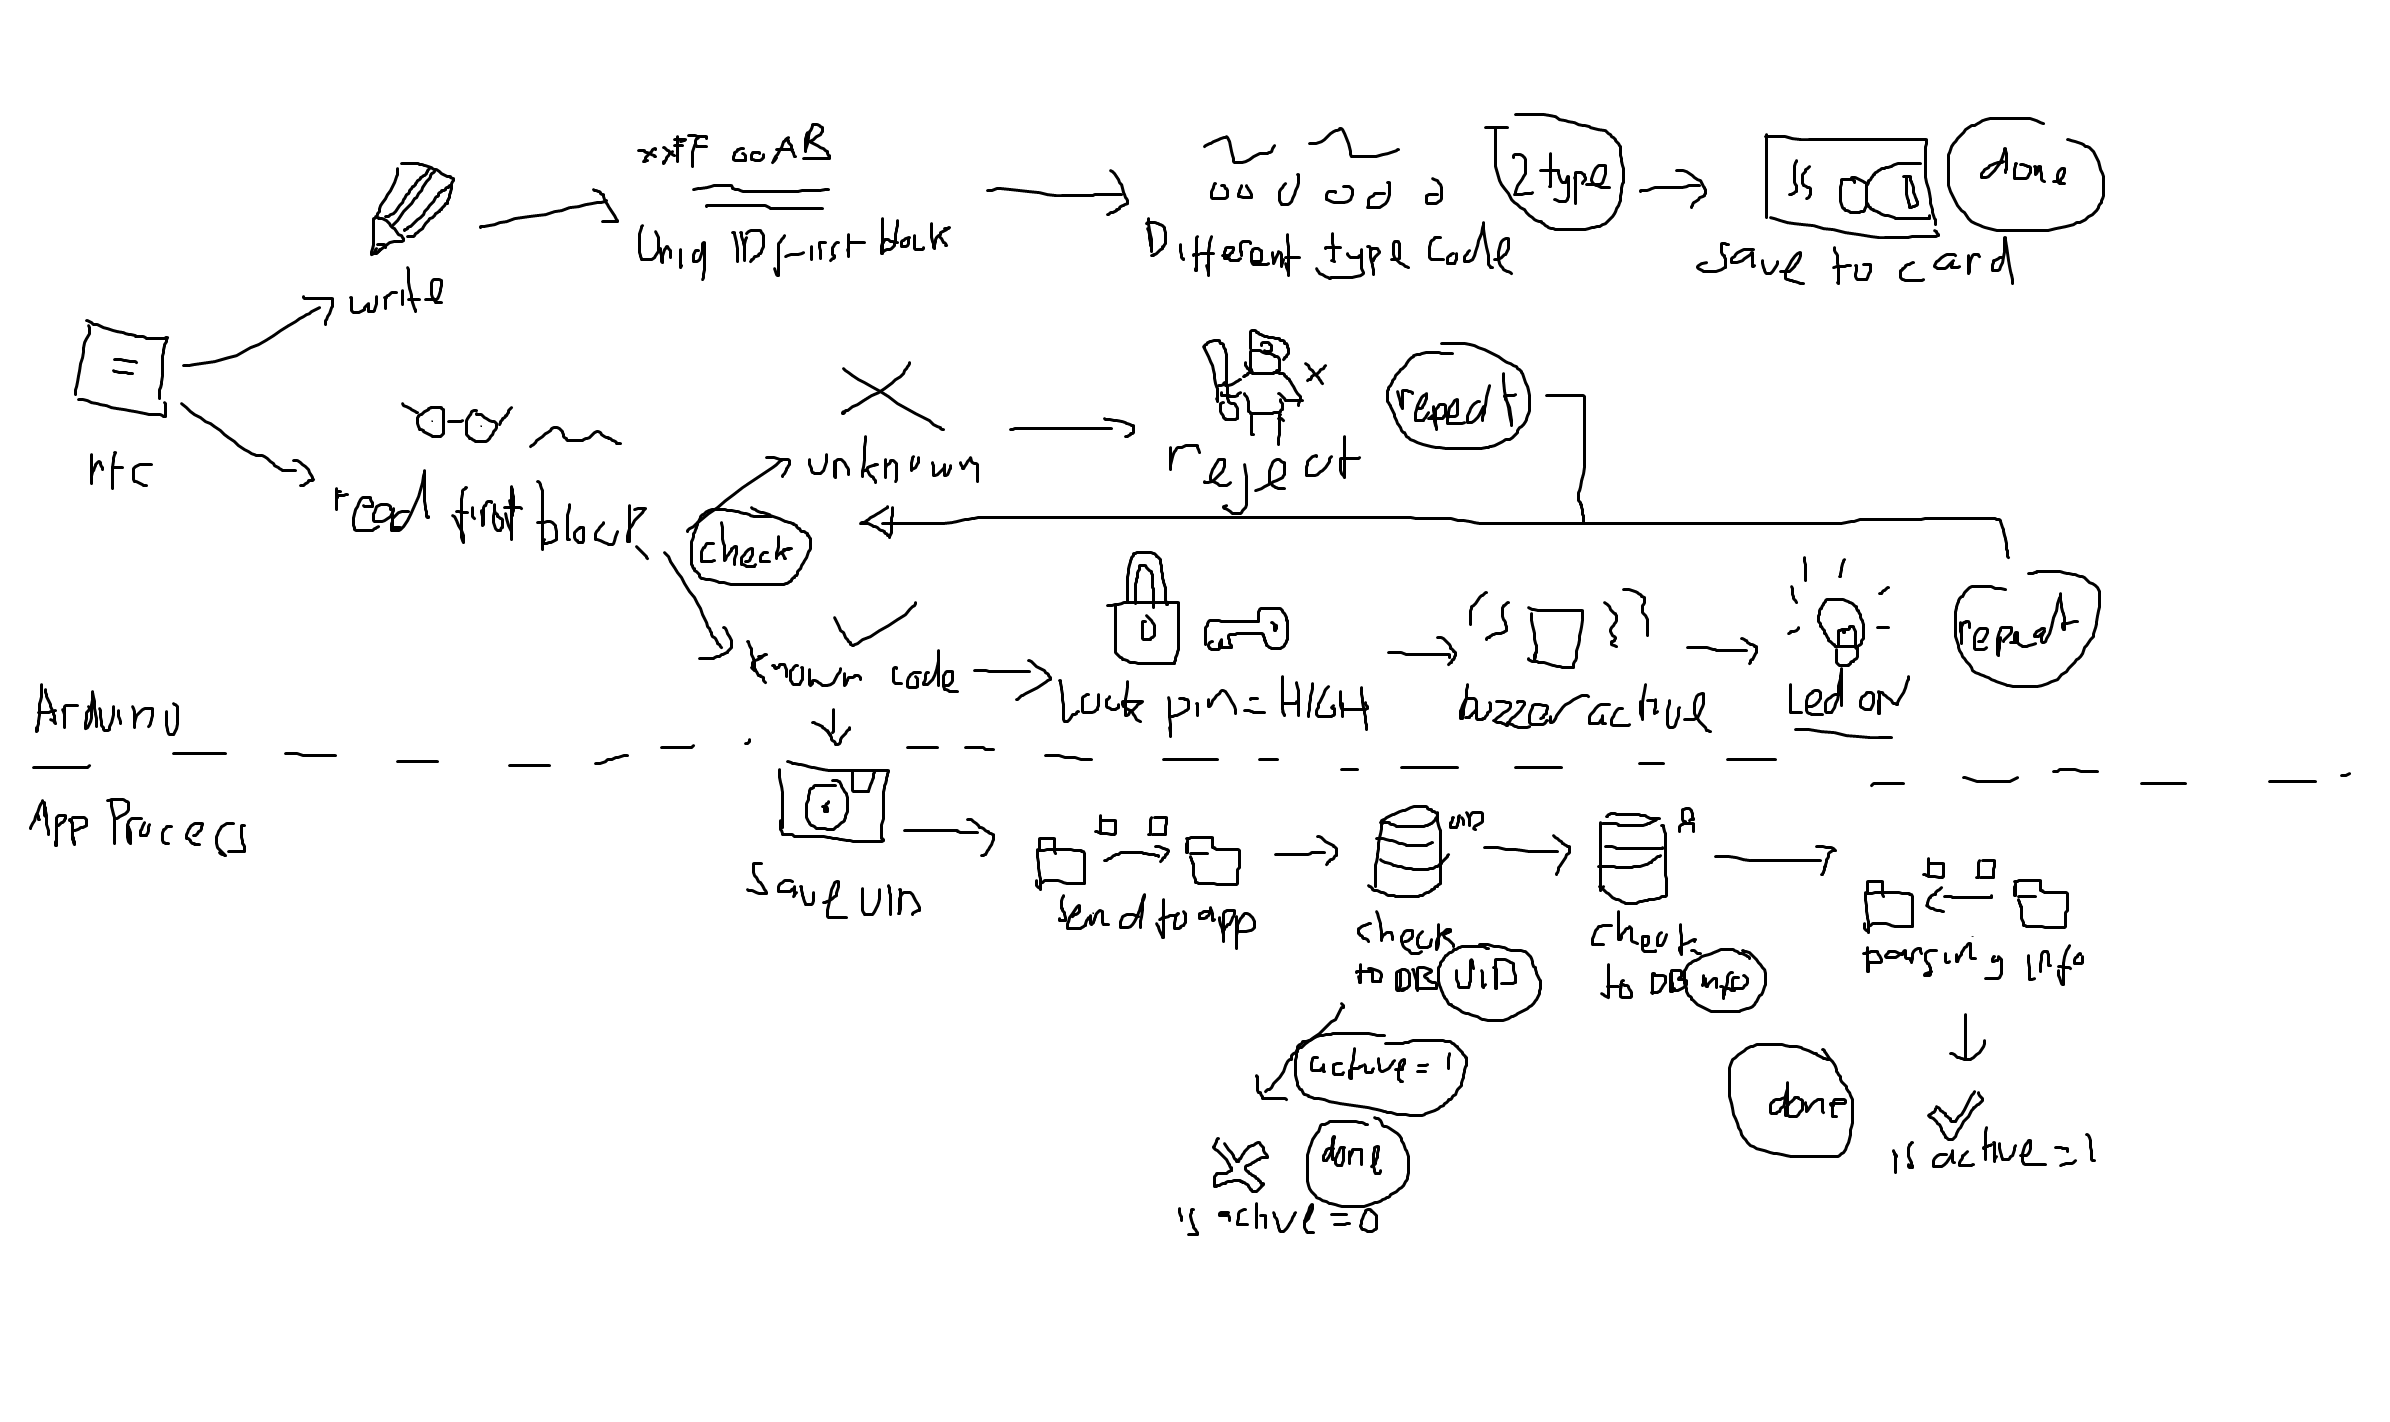 xxFF 00AB
Uniq ID first block
Different type code
2 type
save to card
done
write
rfc
read first block
check
unknown
reject
repeat
known code
Lock pin = HIGH
buzzer active
Led ON
repeat
Arduino
App Process
Save UID
send to app
UID
check
to DB UID
check
to DB info
parsing info
active = 1
done
is active = 0
done
is active = 1